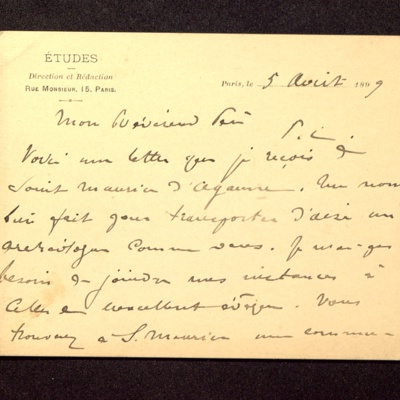 ÉTUDES
Direction et Rédaction
RUE MONSIEUR, 15, PARIS.
Paris, le 5 Août 1899
Mon Révérend Père
P. C.
Voici une lettre que je reçois de
Saint Maurice d'Agaune. Un nom
bien fait pour transporter d'aise un
archéologue comme vous. Je n'ai pas
besoin de joindre mes instances à
celles de l'excellent évêque. Vous
trouverez à S. Maurice une commu-